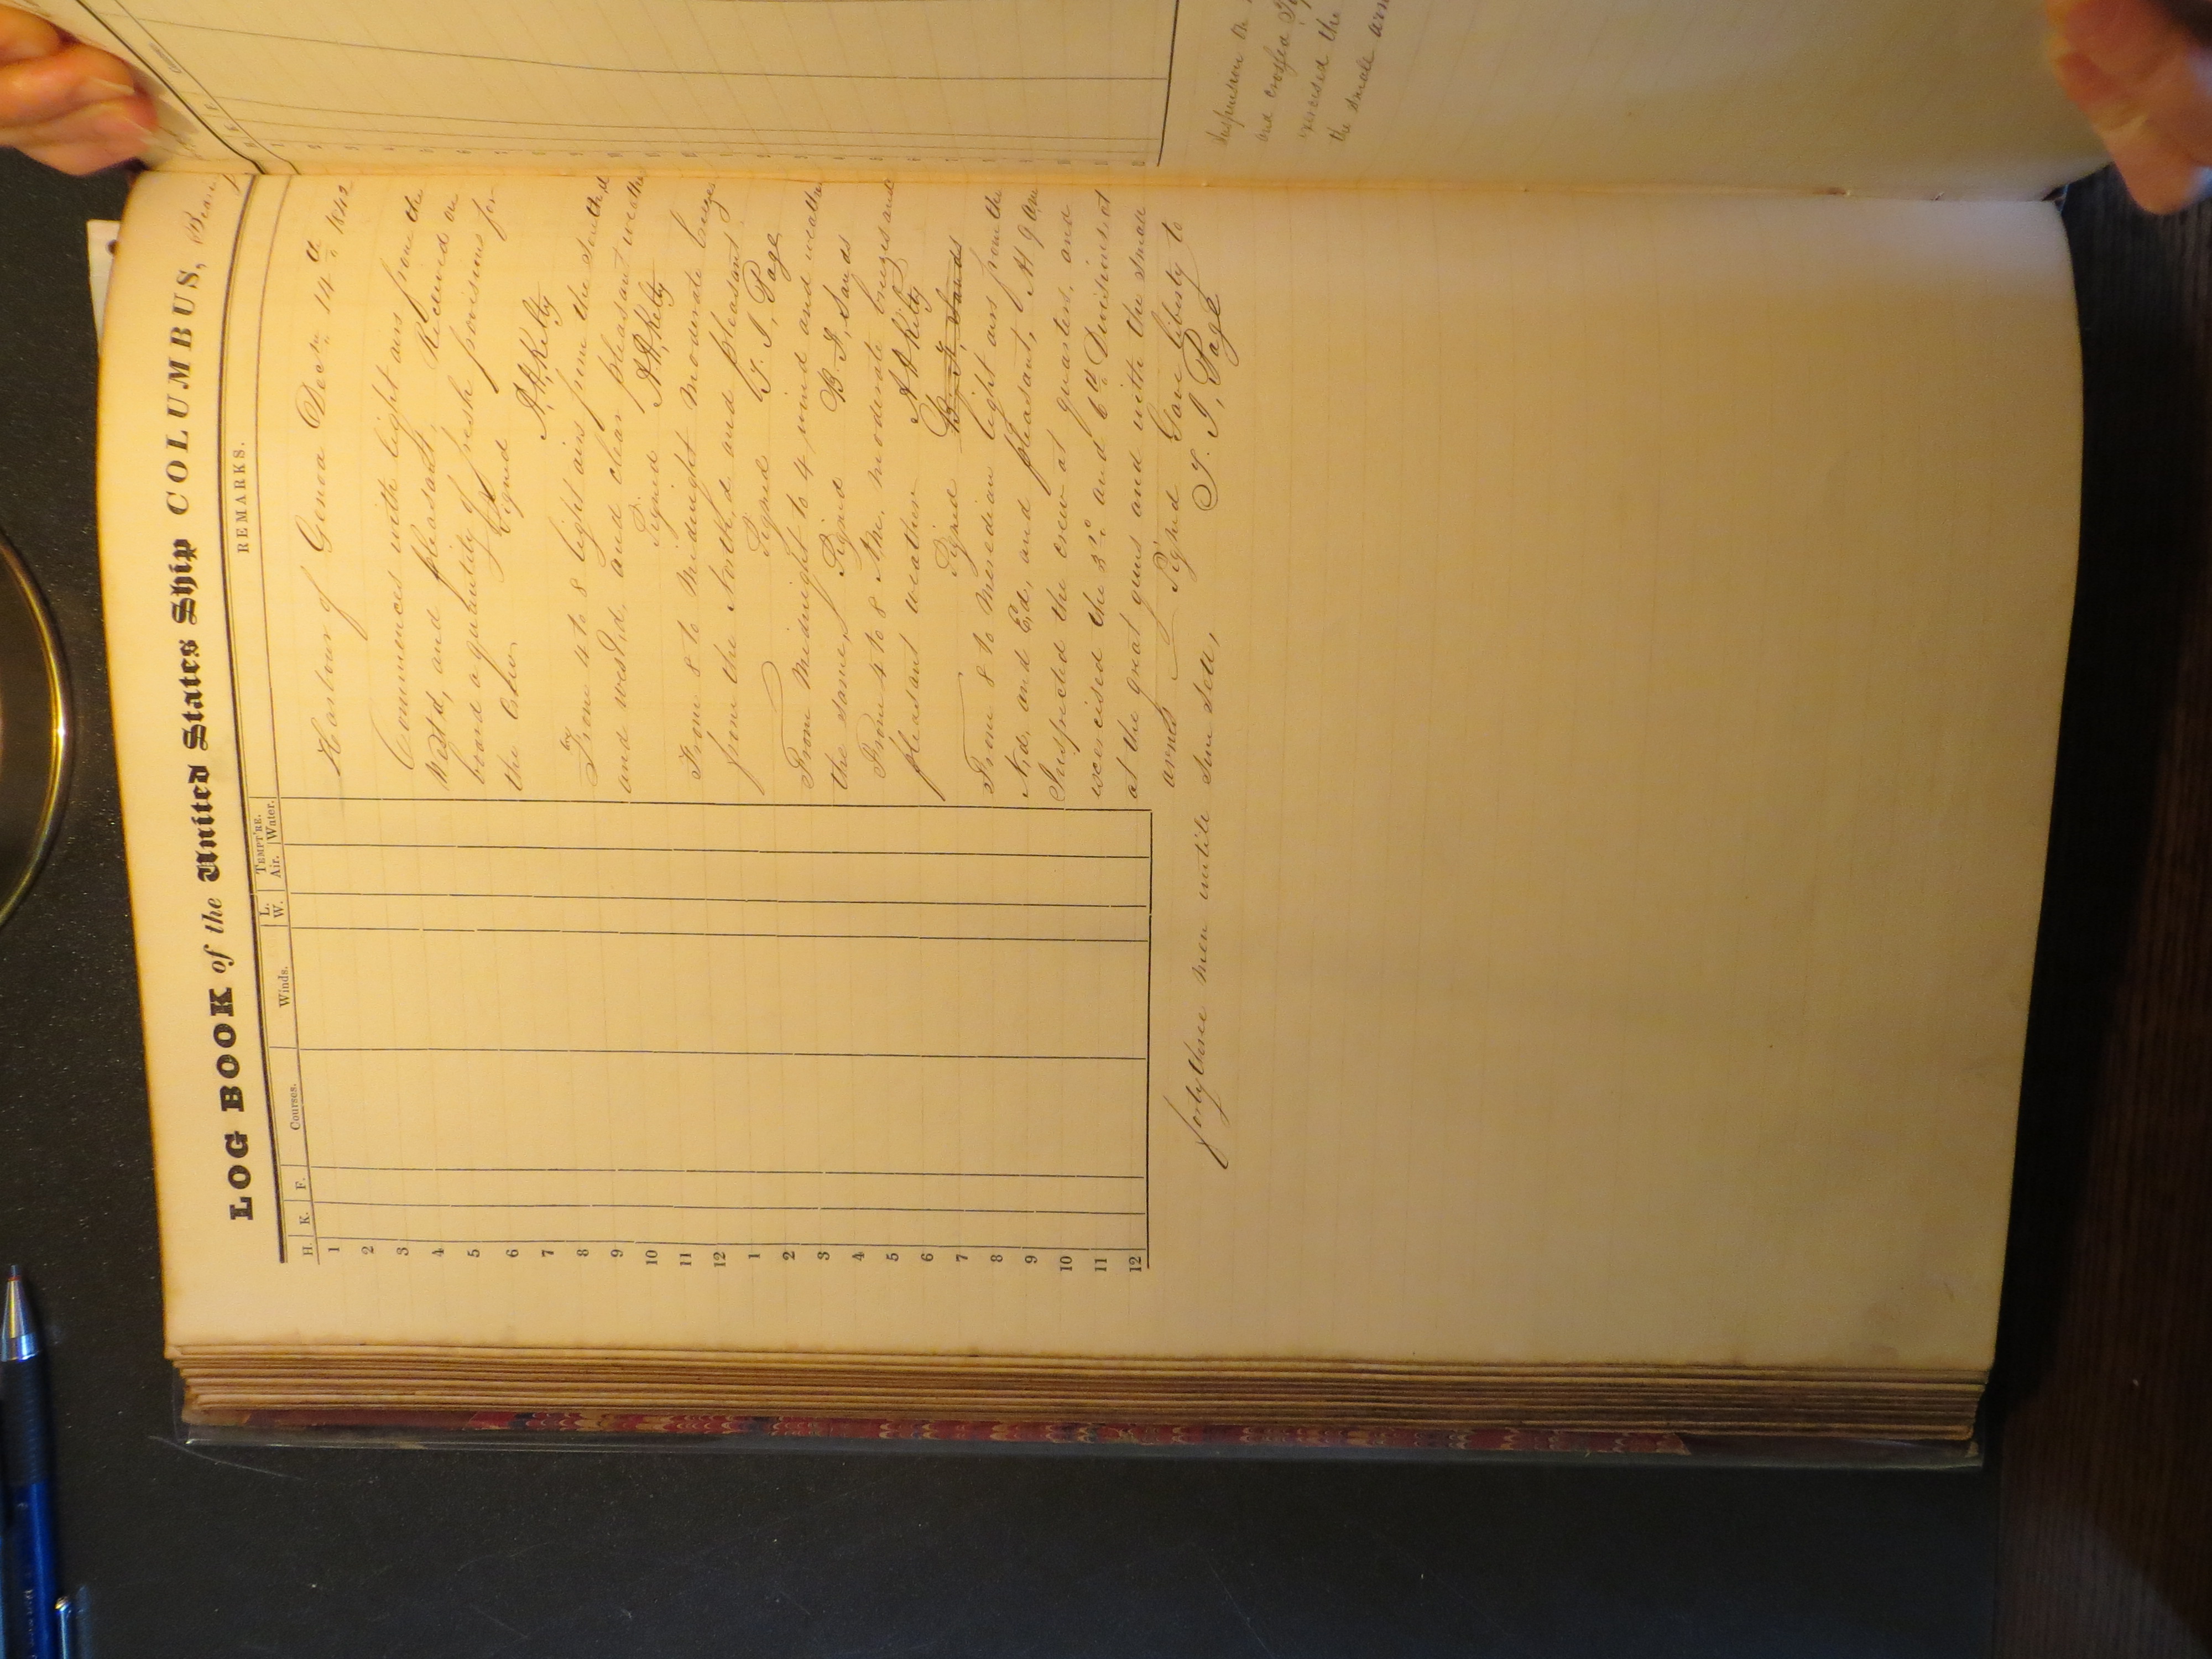 LOG BOOK of the United States Ship COLUMBUS,
H. K. F. Courses. Winds. L. W. TEMPT'RE. Air. Water. REMARKS.
1
2
3
4
5
6
7
8
9
10
11
12
1
2
3
4
5
6
7
8
9
10
11
12
Harbour of Genoa Decr. 14th 1842
Commences with light airs from the
West,d, and pleasant, Received on
board a quantity of fresh provisions for
the Crew.
Signed A, H, Kelty
From 4 to 8 light airs from the South,d
and west,d, and clear pleasant weather
Signed A, H, Kelty
From 8 to Midnight Moderate breezes
from the North,d and pleasant
Signed T. I, Page
From Midnight to 4 wind and weather
the same, Signed B. F, Sands
From 4 to 8 Am. moderate breezes and
pleasant weather A H Kelty
Signed B. F, Sands
From 8 to Meredian light airs from the
N,d, and E,d, and pleasant, At 9 am
Inspected the crew at quarters, and
exercised the 3d and 6th Divisions of
at the great guns and with the small
arms Signed Gave liberty to
forty three men untill Sun Sett, T. I, Page
and crossed
exercised the
the small arm